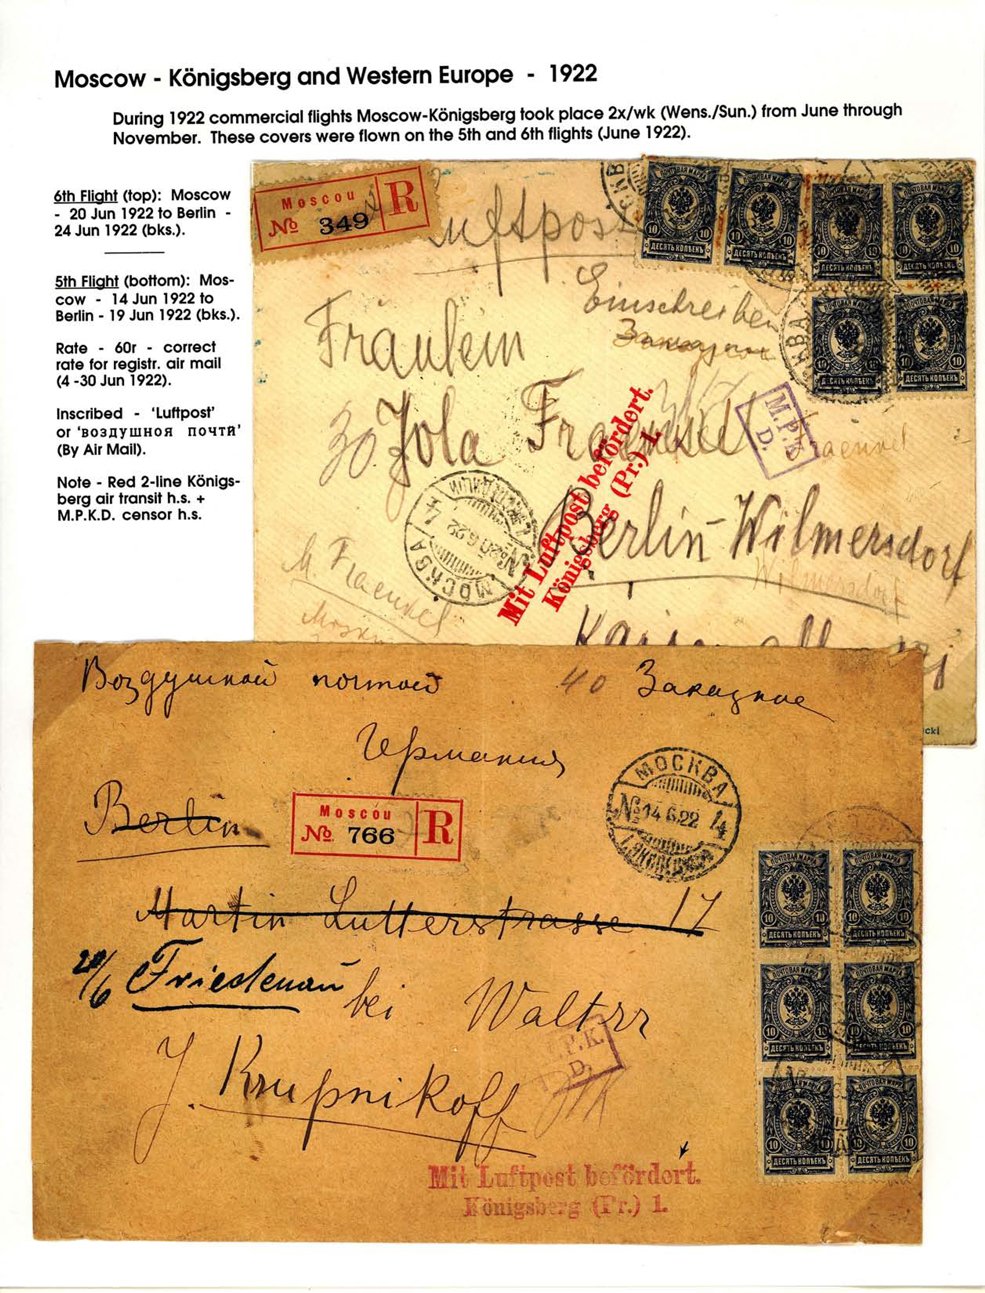 Moscow - Königsberg and Western Europe - 1922
During 1922 commercial flights Moscow-Königsberg took place 2x/wk (Wens./Sun.) from June through
November. These covers were flown on the 5th and 6th flights (June 1922).
6th Flight (top): Moscow
- 20 Jun 1922 to Berlin -
24 Jun 1922 (bks.).
5th Flight (bottom): Mos-
cow - 14 Jun 1922 to
Berlin - 19 Jun 1922 (bks.).
Rate - 60r - correct
rate for registr. air mail
(4 -30 Jun 1922).
Inscribed - 'Luftpost'
or 'воздушноя почти'
(By Air Mail).
Note - Red 2-line Königs-
berg air transit h.s. +
M.P.K.D. censor h.s.
Moscou
№ 349 R
Luftpost
Einschreiben
Заказное
Fräulein
Jola Fraenkel
M.P.K.
D.
Fraenkel
Mit Luftpost befördert.
Königsberg (Pr.) 1.
Berlin-Wilmersdorf
Wilmersdorf
МОСКВА
20.6.22
4
M. Fraenkel
ПОЧТОВАЯ МАРКА
10 10
ДЕСЯТЬ КОПѢЕКЪ
Воздушной почтой 40 Заказное
Германия
Berlin
Moscou
№ 766 R
МОСКВА
14.6.22
4
Martin Lutterstrasse 17
20/6 Friedenau bei Walter
J. Krupnikoff
P.K.
D.
Mit Luftpost befördert.
Königsberg (Pr.) 1.
ПОЧТОВАЯ МАРКА
10 10
ДЕСЯТЬ КОПѢЕКЪ